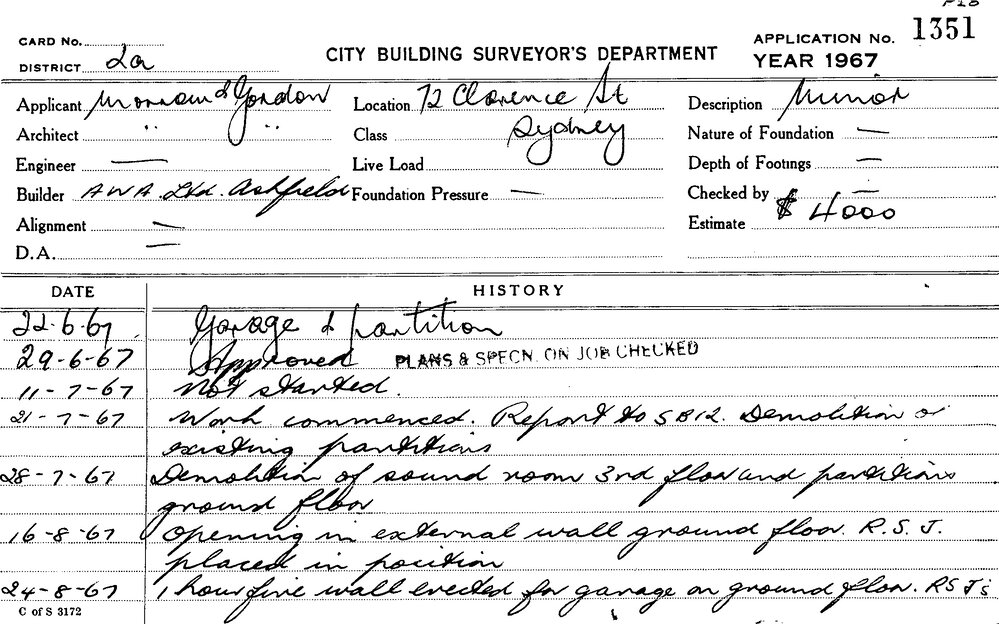 CARD No.
DISTRICT 2a
CITY BUILDING SURVEYOR'S DEPARTMENT
APPLICATION No. 1351
YEAR 1967
Applicant Morrow & Gordon
Location 72 Clarence St
Description Minor
Architect " "
Class Sydney
Nature of Foundation —
Engineer —
Live Load
Depth of Footings —
Builder AWA Ltd. Ashfield
Foundation Pressure —
Checked by —
Alignment —
Estimate $ 4000
D.A. —
DATE HISTORY
22.6.67 Garage & partition
29-6-67 Approved PLANS & SPECN. ON JOB CHECKED
11-7-67 Not started.
21-7-67 Work commenced. Report to SB12. Demolition of
existing partitions
28-7-67 Demolition of sound room 3rd floor and partitions
ground floor
16-8-67 Opening in external wall ground floor. R.S.J.
placed in position
24-8-67 1 hour fire wall erected for garage on ground floor. RSJ's
C of S 3172